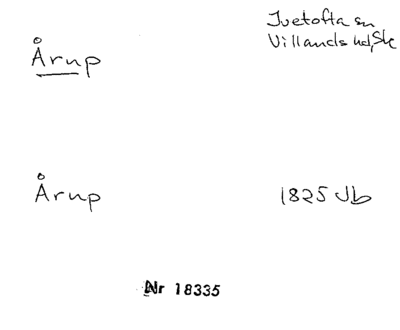 Årup
Ivetofta sn
Villands hd, Sk
Årup
1825 Jb
Nr 18335